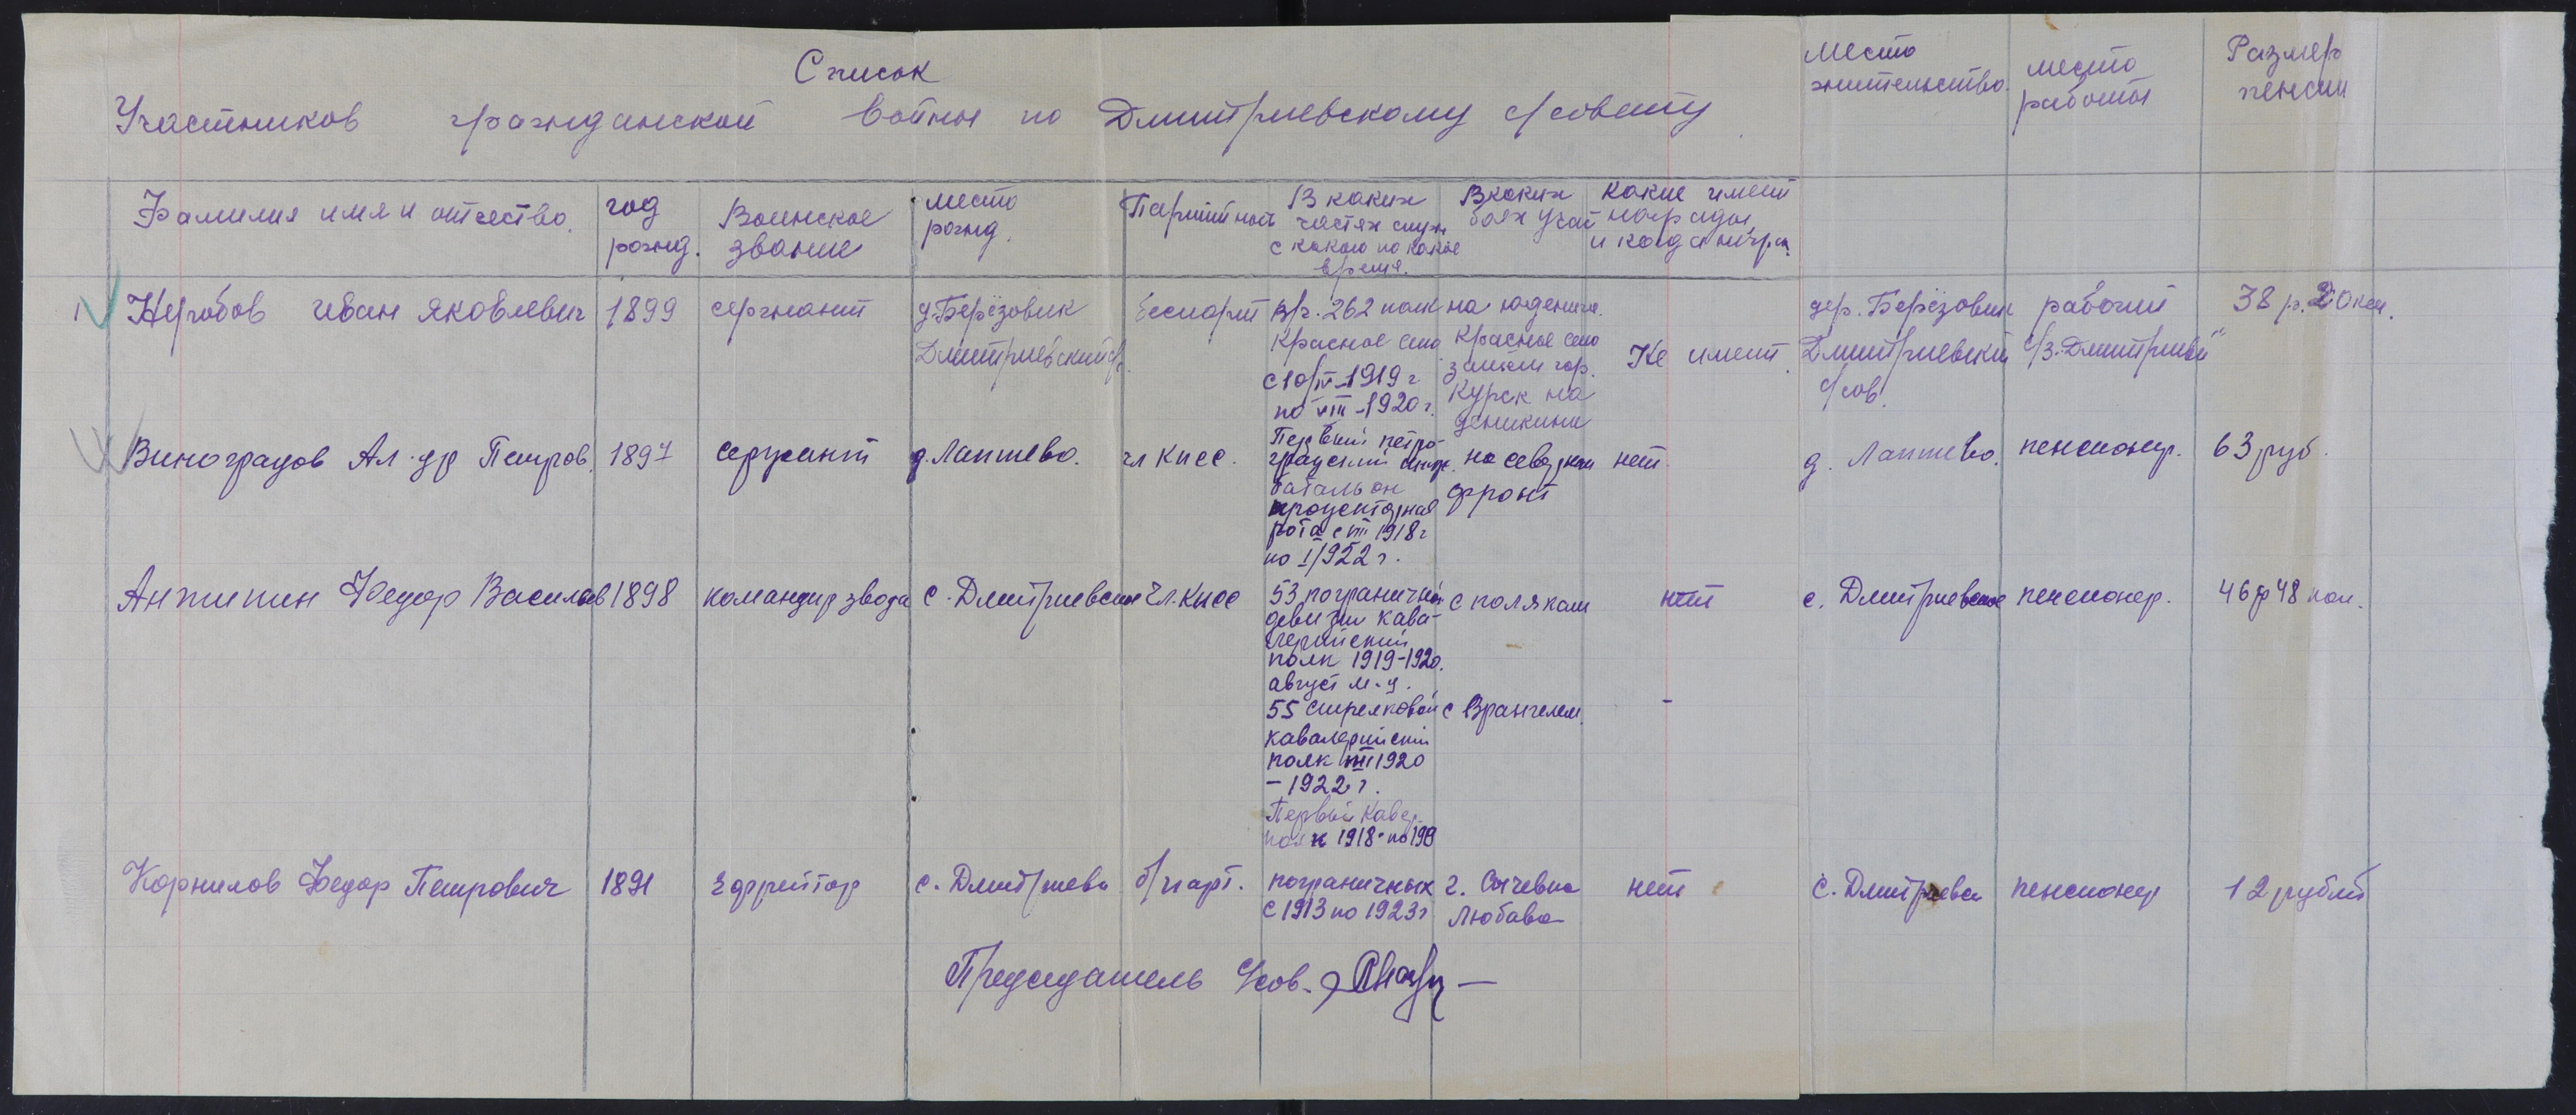 Список
Участников гражданской войны по Дмитриевскому с/совету
место жительства
место работы
Размер пенсии
Фамилия имя и отчество.
год рожд.
Воинское звание
место рожд.
Партийность
В каких частях служ. с какого по какое время.
В каких боях учас
какие имеет награды, и когда
Иван Яковлевич
1899
сержант
д. Берёзовик
Дмитриевский с/с.
беспарт
262 полк
Красное село
с 10/IV-1919 г
по VIII-1920 г.
на юденича.
Красное село
гор.
Курск на
деникина
Не имеет
дер. Берёзовик
Дмитриевский
с/сов.
рабочий
с/з. „Дмитриевский"
38 р. 20 коп.
Виноградов Ал-др Петров.
1897
сержант
д. Лаптево.
чл КПСС.
Первый петро-
градский
батальон
рота с VIII 1918 г
по I/1922 г.
на
фронт
нет
д. Лаптево.
пенсионер.
63 руб.
Антипин Федор Васильев
1898
командир звода
с. Дмитриевское
чл. КПСС
53 пограничной
девизии кава-
лерийский
полк 1919-1920.
август м-ц.
с поляками
нет
с. Дмитриевское
пенсионер.
46 р 48 коп.
55 стрелковой
кавалерийский
полк VIII 1920
– 1922 г.
с Врангелем.
-
Первый Кавер.
полк 1918 по 19
Корнилов Федор Петрович
1891
Ефрейтор
с. Дмитриева
б/парт.
пограничных
с 1913 по 1923 г
г. Сычевка
Любава
нет
с. Дмитриева
пенсионер
12 рублей
Председатель с/сов.